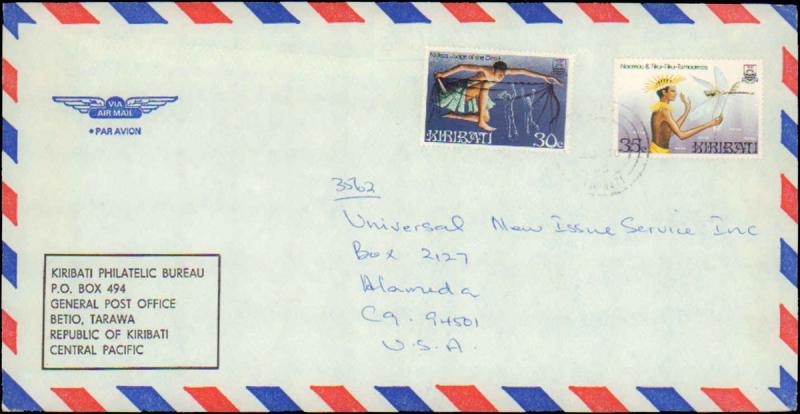 VIA
AIR MAIL
PAR AVION
Judge of the Dead
KIRIBATI
30c
Naareau & Tiku-Tiku-Tamoamoa
35c KIRIBATI
3562
Universal New Issue Service Inc
Box 2127
Alameda
Ca. 94501
U.S.A.
KIRIBATI PHILATELIC BUREAU
P.O. BOX 494
GENERAL POST OFFICE
BETIO, TARAWA
REPUBLIC OF KIRIBATI
CENTRAL PACIFIC